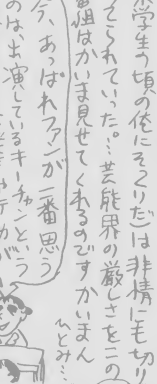 小学生の頃の俺にそくりだ)は非情にも切り
そられていった。…芸能界の厳しさをこの
番組はかいま見せてくれるのです かいまん
ひとみ…
今、あっぱれファンが一番思う
のは、出演しているキーチャンという